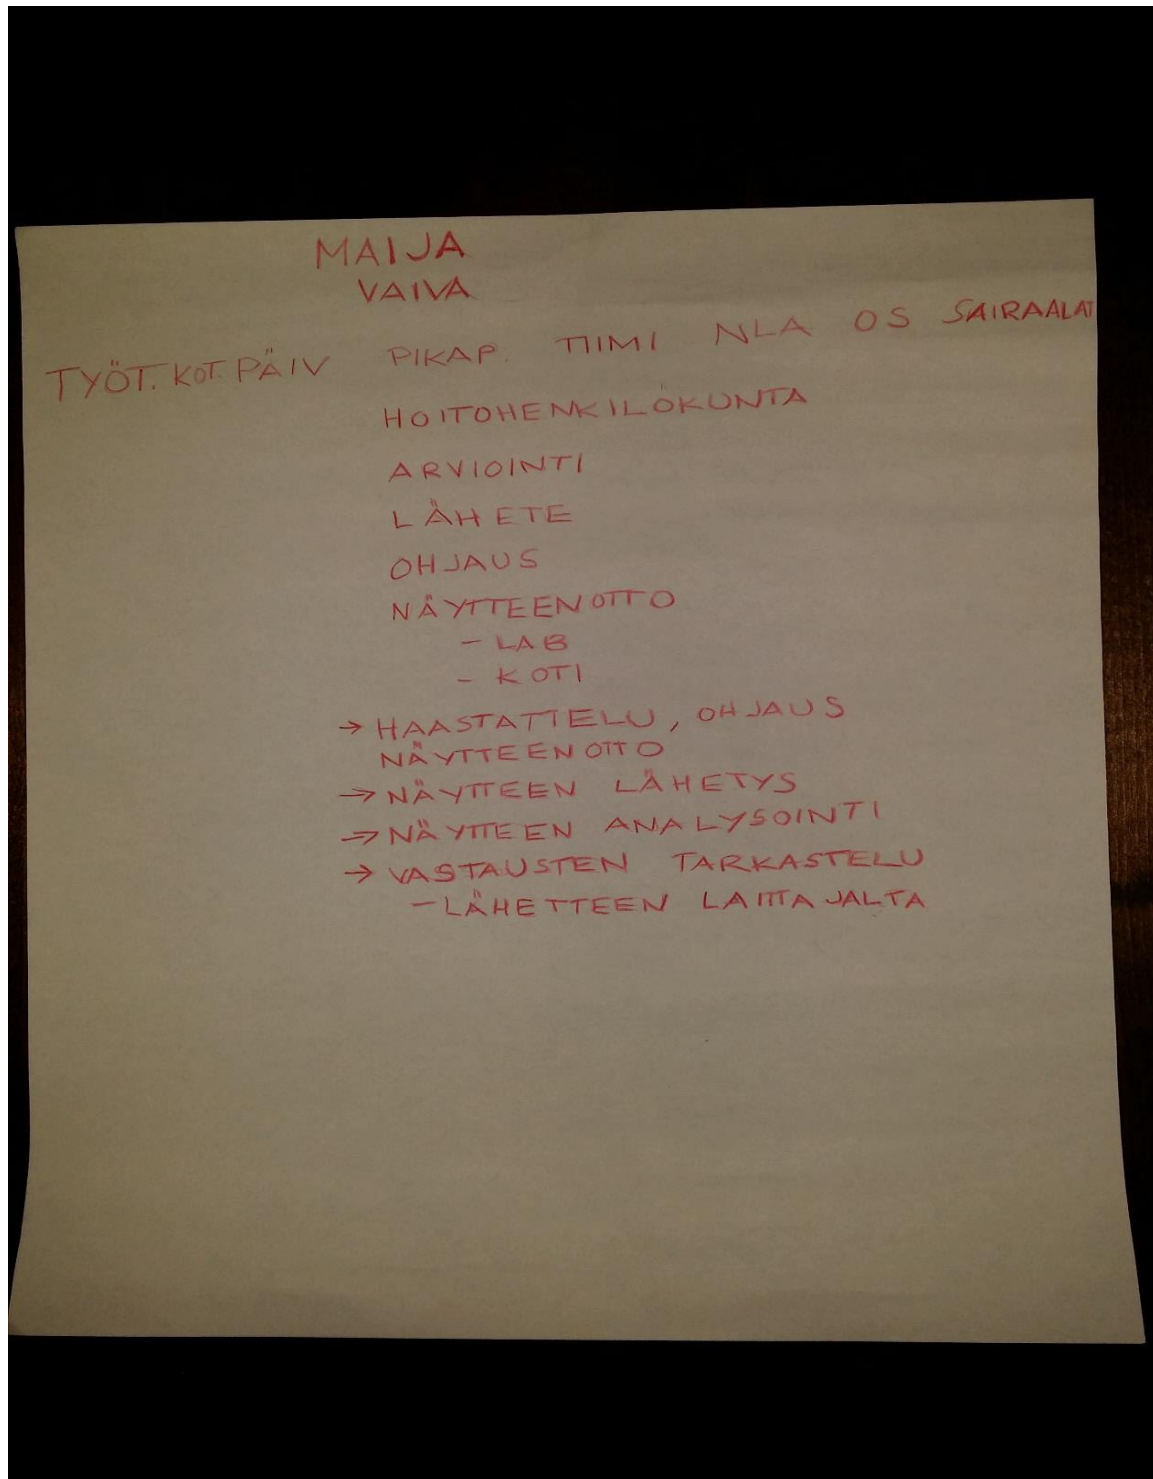 MAIJA
VAIVA
TYÖT. KOT. PÄIV PIKAP. TIIMI NLA OS SAIRAALAT
HOITOHENKILÖKUNTA
ARVIOINTI
LÄHETE
OHJAUS
NÄYTTEENOTTO
- LAB
- KOTI
→ HAASTATTELU, OHJAUS
NÄYTTEENOTTO
→ NÄYTTEEN LÄHETYS
→ NÄYTTEEN ANALYSOINTI
→ VASTAUSTEN TARKASTELU
- LÄHETTEEN LAITTAJALTA